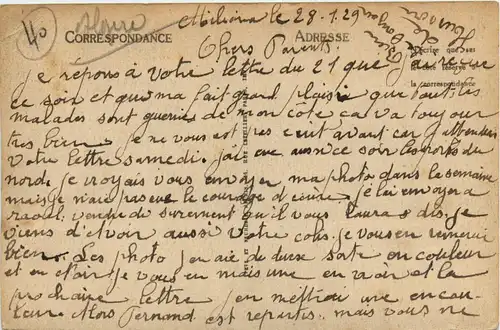 40
CORRESPONDANCE
ADRESSE
Miliana le 28-1.29
Chers Parents.
je répons à votre lettre du 21 que j'ai reçue
ce soir et qui ma fait grand plaisir que tout les
malades sont guéries de mon côte ca va toujour
tres bien. je ne vous est pas ecrit avant car j'attendais
votre lettre samedi. j'ai eue aussi ce soir les
nord. je croyais vous envoyer ma photo dans la semaine
mais je n'ai pas eue le courage d'ecrire. je l'ai envoyer a
raoul. vendredi surement qu'il vous l'aura dis. je
viens d'avoir aussi votre colis. je vous en remercie
bien. Les photo j'en aie de deux sorte en couleur
et en noir je vous en mais une en noir et la
prochaine lettre j'en mettrai une en coul-
leur. Alors Fernand est repartis. mais vous ne